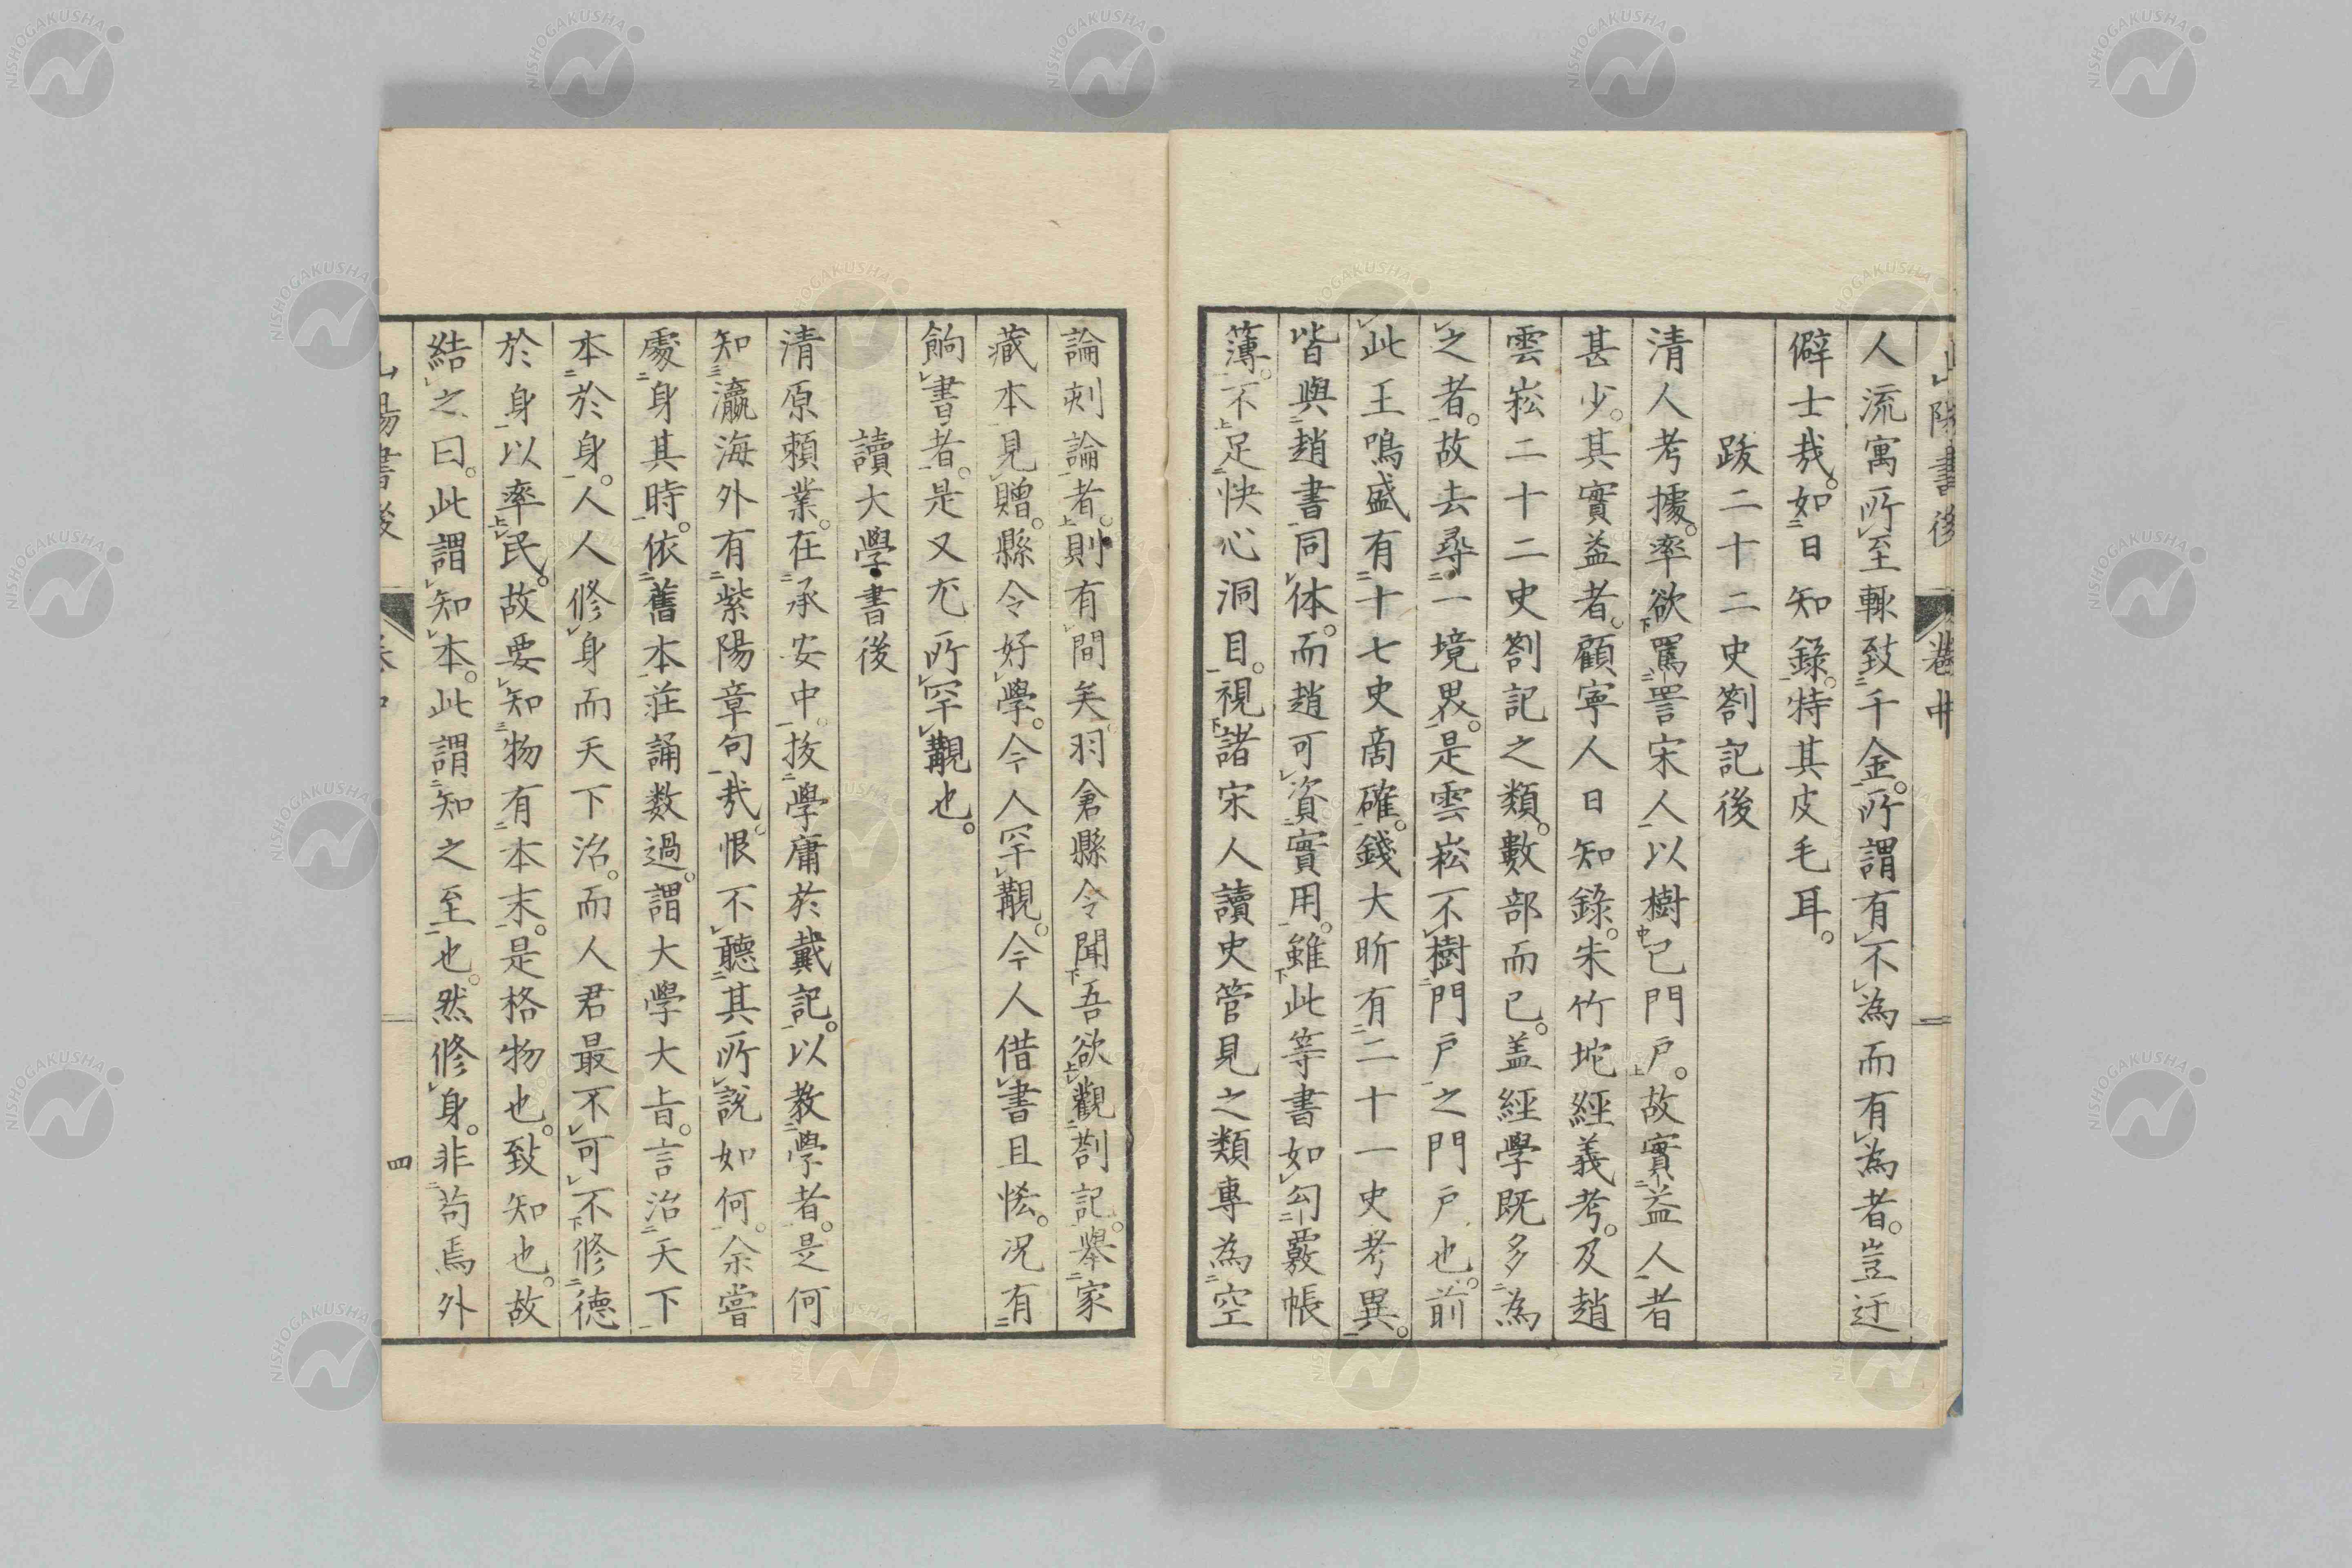 山陽書後 卷中
人流寓所至輙致千金。所謂有不為而有為者。豈迂
僻士哉。如日知錄。特其皮毛耳。
跋二十二史劄記後
清人考據。率欲罵詈宋人以樹己門戶。故實益人者
甚少。其實益者。顧寧人日知錄。朱竹坨經義考。及趙
雲崧二十二史劄記之類。數部而已。盖經學既多為
之者。故去尋一境界。是雲崧不樹門戶之門戶也。前
此王鳴盛有十七史商確。錢大昕有二十一史考異。
皆與趙書同体。而趙可資實用。雖此等書如勾覈帳
簿。不足快心洞目。視諸宋人讀史管見之類專為空
論刻論者。則有間矣。羽倉縣令聞吾欲觀劄記。舉家
藏本見贈。縣令好學。今人罕覯。今人借書且恡。况有
餉書者。是又尤所罕覯也。
讀大學書後
清原頼業。在承安中。抜學庸於戴記。以教學者。是何
知瀛海外有紫陽章句哉。恨不聽其所說如何。余嘗
處身其時。依舊本莊誦数過。謂大學大旨。言治天下
本於身。人人修身而天下治。而人君最不可不修德
於身以率民。故要知物有本末。是格物也。致知也。故
結之曰。此謂知本。此謂知之至也。然修身。非苟焉外
山陽書後 卷中 四
NISHOGAKUSHA